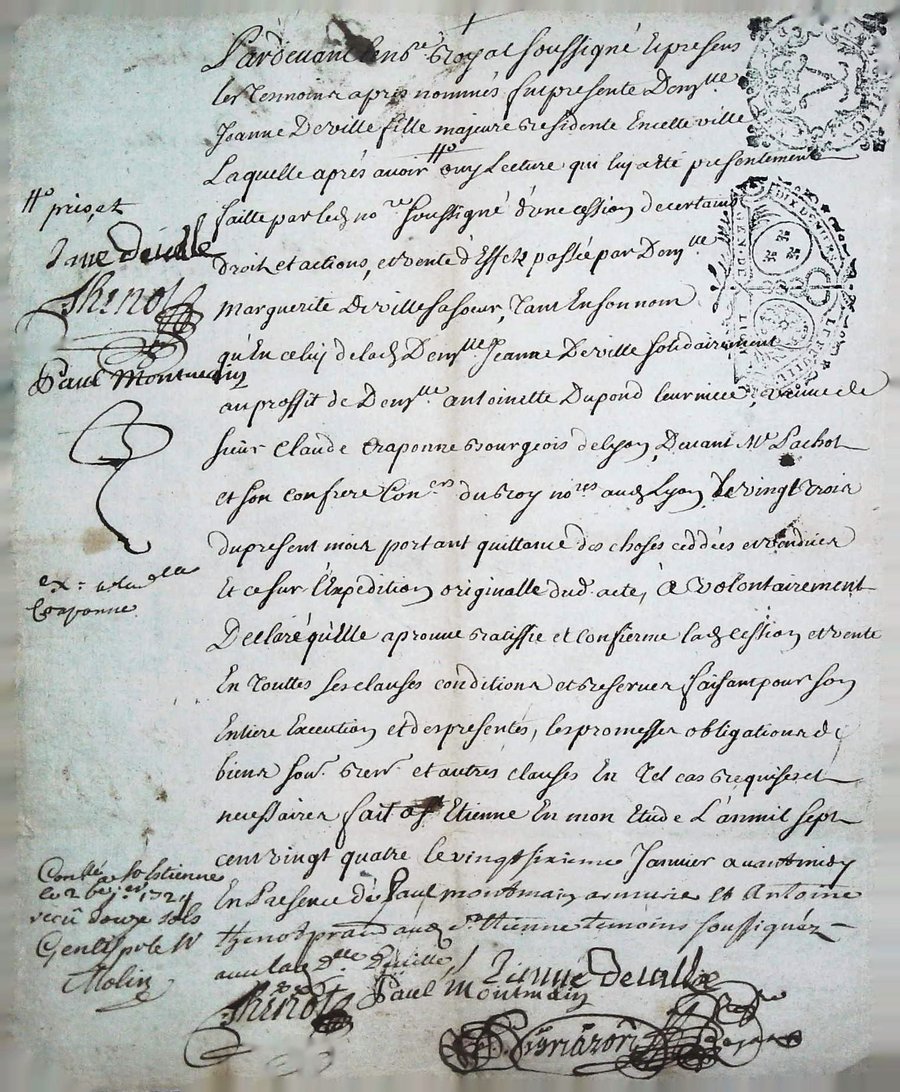 Pardevant le no.re Royal soussigné Et presens
les Temoins après nommés fut presente Dem.lle
Jeanne Deville fille majeure Residente En cette ville
Laquelle après avoir #o ouy Lecture qui luy a eté presentement
faitte par led no.re soussigné d'une cession de certains
droit et actions, et vente d'Effets passée par Dem.lle
marguerite Deville sa soeur, Tant En son nom
qu'En celuy de lad. Dem.lle Jeanne Deville solidairement
au proffit de Dem.lle antoinette Dupond leur niece, veuve de
sieur Claude Craponne Bourgeois de lyon, Devant M.e Pachot
et son confrere Con.ers du Roy no.res aud. Lyon Le vingt trois
du present mois portant quittance des choses ceddées et vendües
Et ce sur l'Expedition originalle dud. acte, a volontairement
Declaré qu'Elle aprouve Ratiffie et confierme lad. cession et vente
En Touttes ses clauses conditions et reserves faisant pour son
Entiere Execution et des presentes, les promesses obligations de
biens sou.n Ren.n et autres clauses En Tel cas Requises et
necessaires fait a S.t Etienne En mon Etude L'an mil sept
cent vingt quatre le vingt sixieme Janvier avant midy
En Presence de Paul montmain armurie et Antoine
thenot prand aud. S.t Etienne temoins soussignéz
avec lad. D.lle Deville /
Jeanne Deville
Thenot Paul Montmain
#o pris, et
Jane Deville
Thenot
Paul Montmain
ex: a la d.lle
Craponne
Conlle a St Etienne
le 26 jer 1724
reçû douze sols
Gentil pr le Sr
Molin